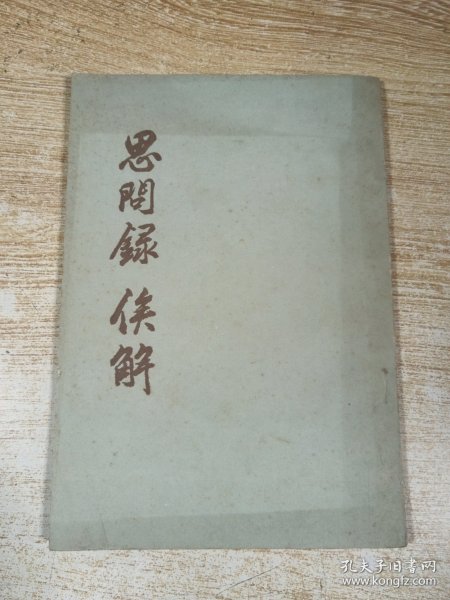 思問録 俟解
孔夫子旧书网
www.kongfz.com